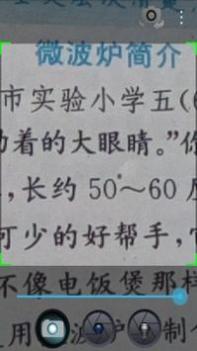 微波炉简介
市实验小学五(6
着的大眼睛。”你
,长约 50~60 厘
可少的好帮手,它
不像电饭煲那样
用
制